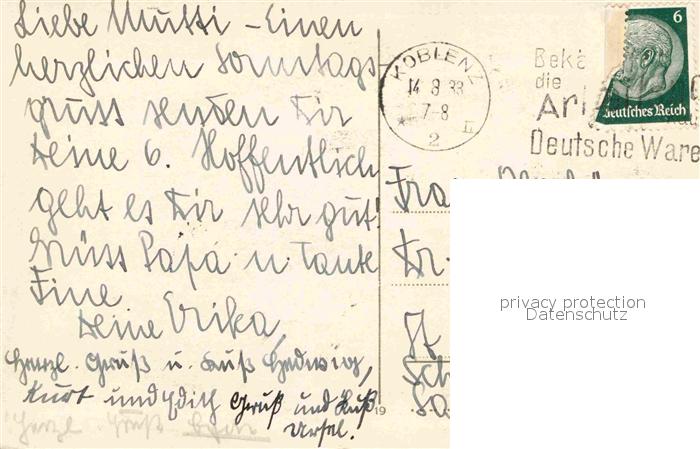 Liebe Mutti – Einen
herzlichen Sonntags-
gruss senden Dir
Deine 6. Hoffentlich
geht es Dir sehr gut!
Grüss Papa u. Tante
Fine
Deine Erika,
Herzl. Gruß u. Kuß Hedwig,
Kurt und Edith Gruß und Kuß
Ursel.
Herzl. Gruß
19
KOBLENZ
14 8 33
7-8
2
II
Bekä
die
Arb
Deutsche Ware
6
Deutsches Reich
Frau
Dr.
privacy protection
Datenschutz
St
Sch
Sa